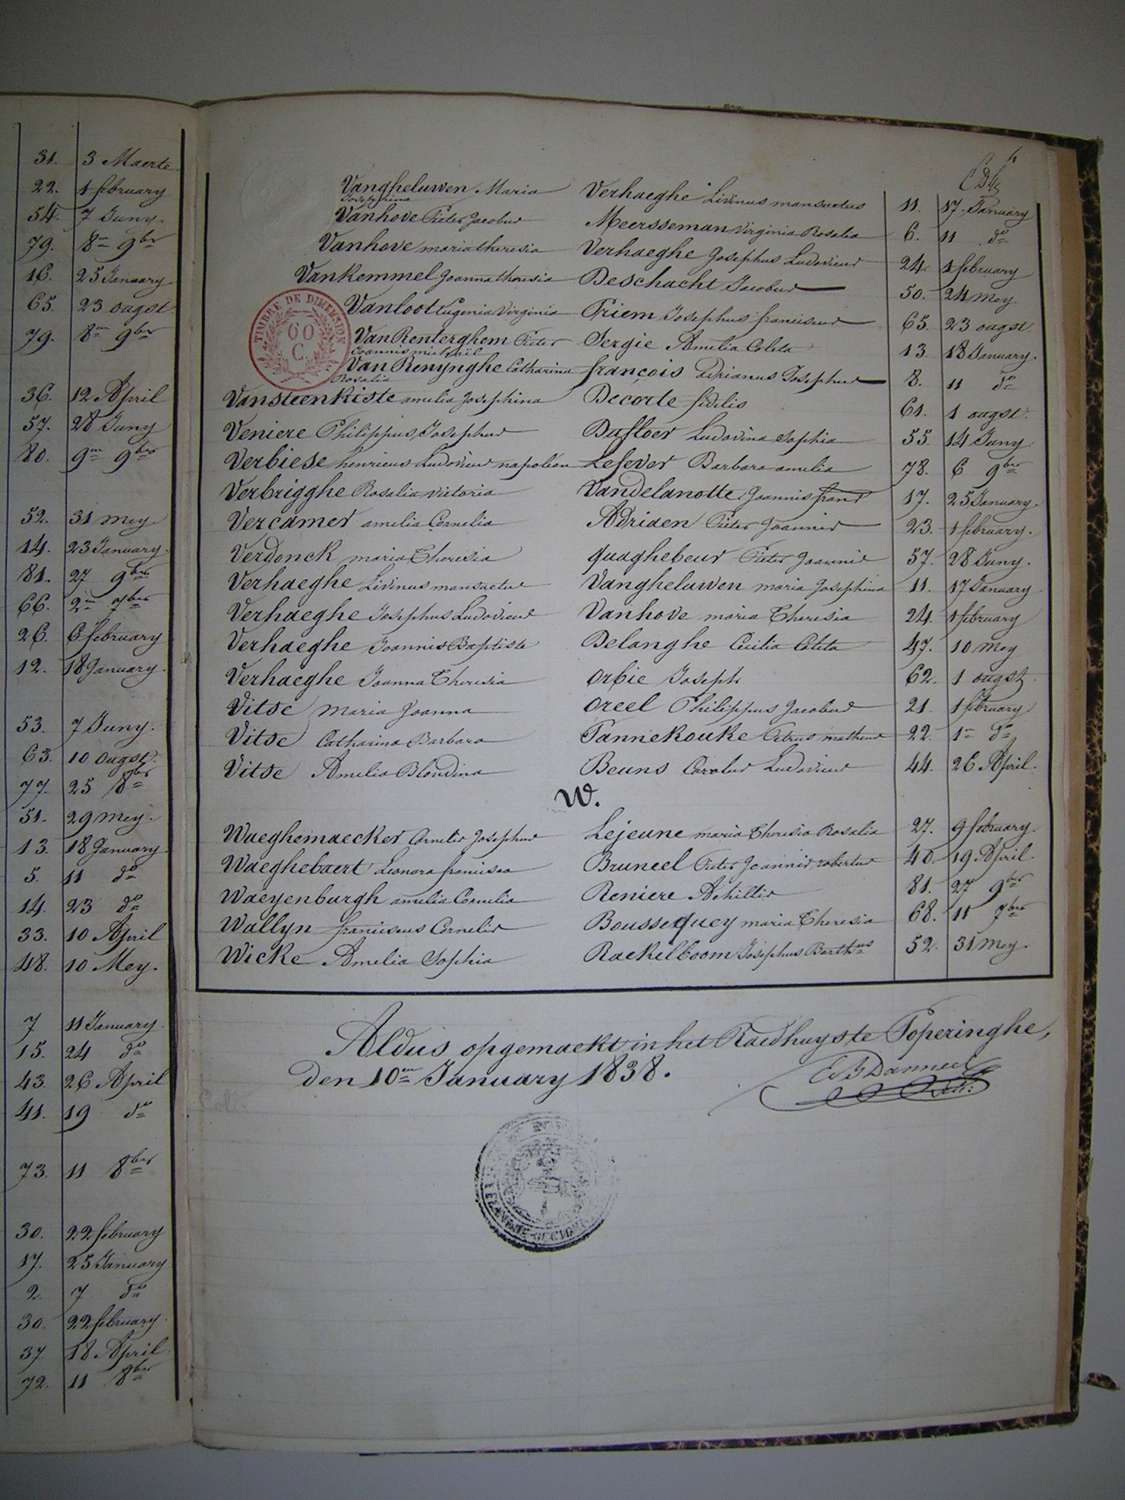 31. 3 Maerte
22. 1 february
54. 7 Juny.
79. 8en 9ber
16. 25 January
65. 23 ougst
79. 8en 9ber
36. 12 April
57. 28 Juny
80. 9en 9ber
52. 31 mey
14. 23 January.
81. 27 9ber
66. 2en 7ber
26. 6 february
12. 18 January.
53. 7 Juny.
63. 10 ougst.
77. 25 8ber
51. 29 mey.
13. 18 January
5. 11 do
14. 23 do
33. 10 April
48. 10 Mey.
7 11 January.
15. 24 do
43. 26 April
41. 19 do
73. 11 8ber
30. 22 february
17. 25 January
2. 7 do
30. 22 february.
37 18 April
72. 11 8ber
Vangheluwen Maria Josephina Verhaeghe Livinus mansuetus 11. 17 January
Vanhove Pieter Jacobus Meersseman Virginia Rosalia 6. 11 do
Vanhove maria theresia Verhaeghe Josephus Ludovicus 24. 1 february
Vankemmel Joanna theresia Deschacht Jacobus 50. 24 mey.
Vanloot Eugenia Virginia Priem Josephus franciscus 65. 23 ougst
TIMBRE DE DIMENSION
60 C.
Van Renterghem Pieter Joannes Sergie Amelia Coleta 13. 18 January.
Van Renynghe Catharina Rosalia françois Adrianus Josephus 8. 11 do
Vansteenkiste amelia Josephina Decorte fidelis 61. 1 ougst.
Veniere Philippus Josephus Dafloer Ludovina Sophia 55. 14 Juny
Verbiese henricus Ludovicus napoléon Lefever Barbara amelia 78. 6 9ber
Verbrigghe Rosalia victoria Vandelanotte Joannis frans 17. 25 January.
Vercamer amelia Cornelia Adriaen Pieter Joannes 23. 1 february.
Verdonck maria Theresia quaghebeur Pieter Joannes 57. 28 Juny.
Verhaeghe Livinus mansuetus Vangheluwen maria Josephina 11. 17 January
Verhaeghe Josephus Ludovicus Vanhove maria Theresia 24. 1 february
Verhaeghe Joannis Baptiste Delanghe Cecilia Coleta 47. 10 mey
Verhaeghe Joanna Theresia Orbie Joseph 62. 1 ougst.
Vitse Maria Joanna Oreel Philippus Jacobus 21. 1 february
Vitse Catharina Barbara Pannekouke Petrus matheus 22. 1en do
Vitse Amelia Blondina Beuns Carolus Ludovicus 44. 26 April.
W.
Waeghemaecker Cornelis Josephus Lejeune maria Theresia Rosalia 27. 9 february.
Waeghebaert Leonora francisca Bruneel Pieter Joannis robertus 40. 19 April
Waeyenburgh amelia Cornelia Reniere Achilles 81. 27 9ber
Wallyn franciscus Cornelis Boussequey maria Theresia 68. 11 7ber
Wicke Amelia Sophia Raekelboom Josephus Barths 52. 31 mey.
Aldus opgemaekt in het Raedhuys te Poperinghe,
den 10en January 1838.